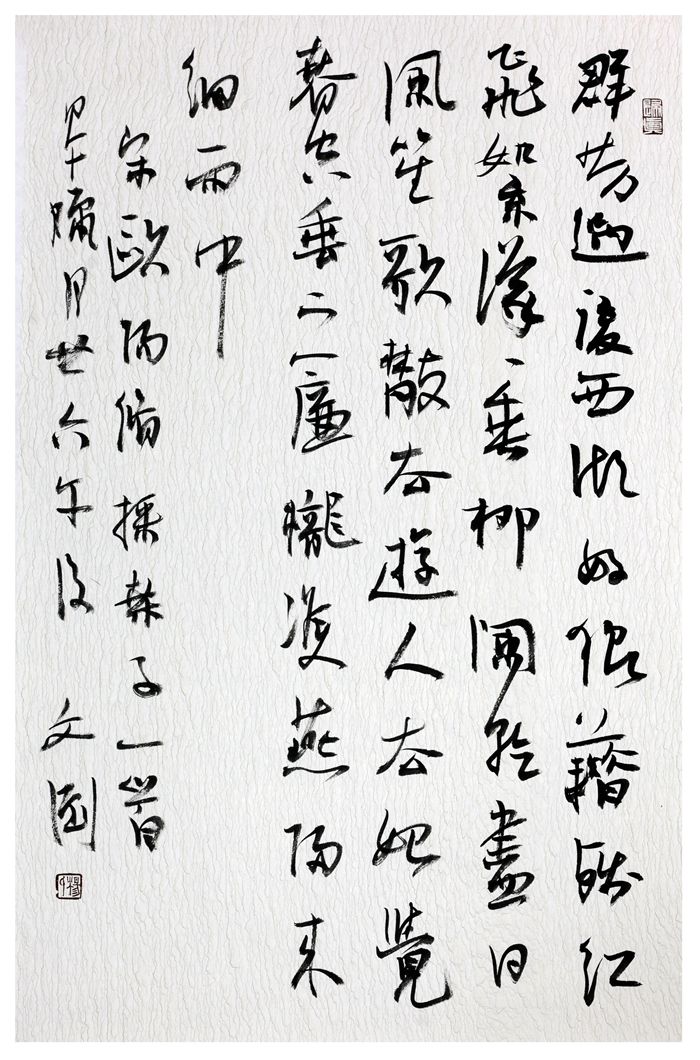 群芳過後西湖好狼藉殘紅
飛絮濛濛垂柳闌幹盡日
風笙歌散去遊人去始覺
春空垂下簾櫳雙燕歸來
細雨中
宋歐陽脩採桑子一首
甲午臘月廿六午後 文國